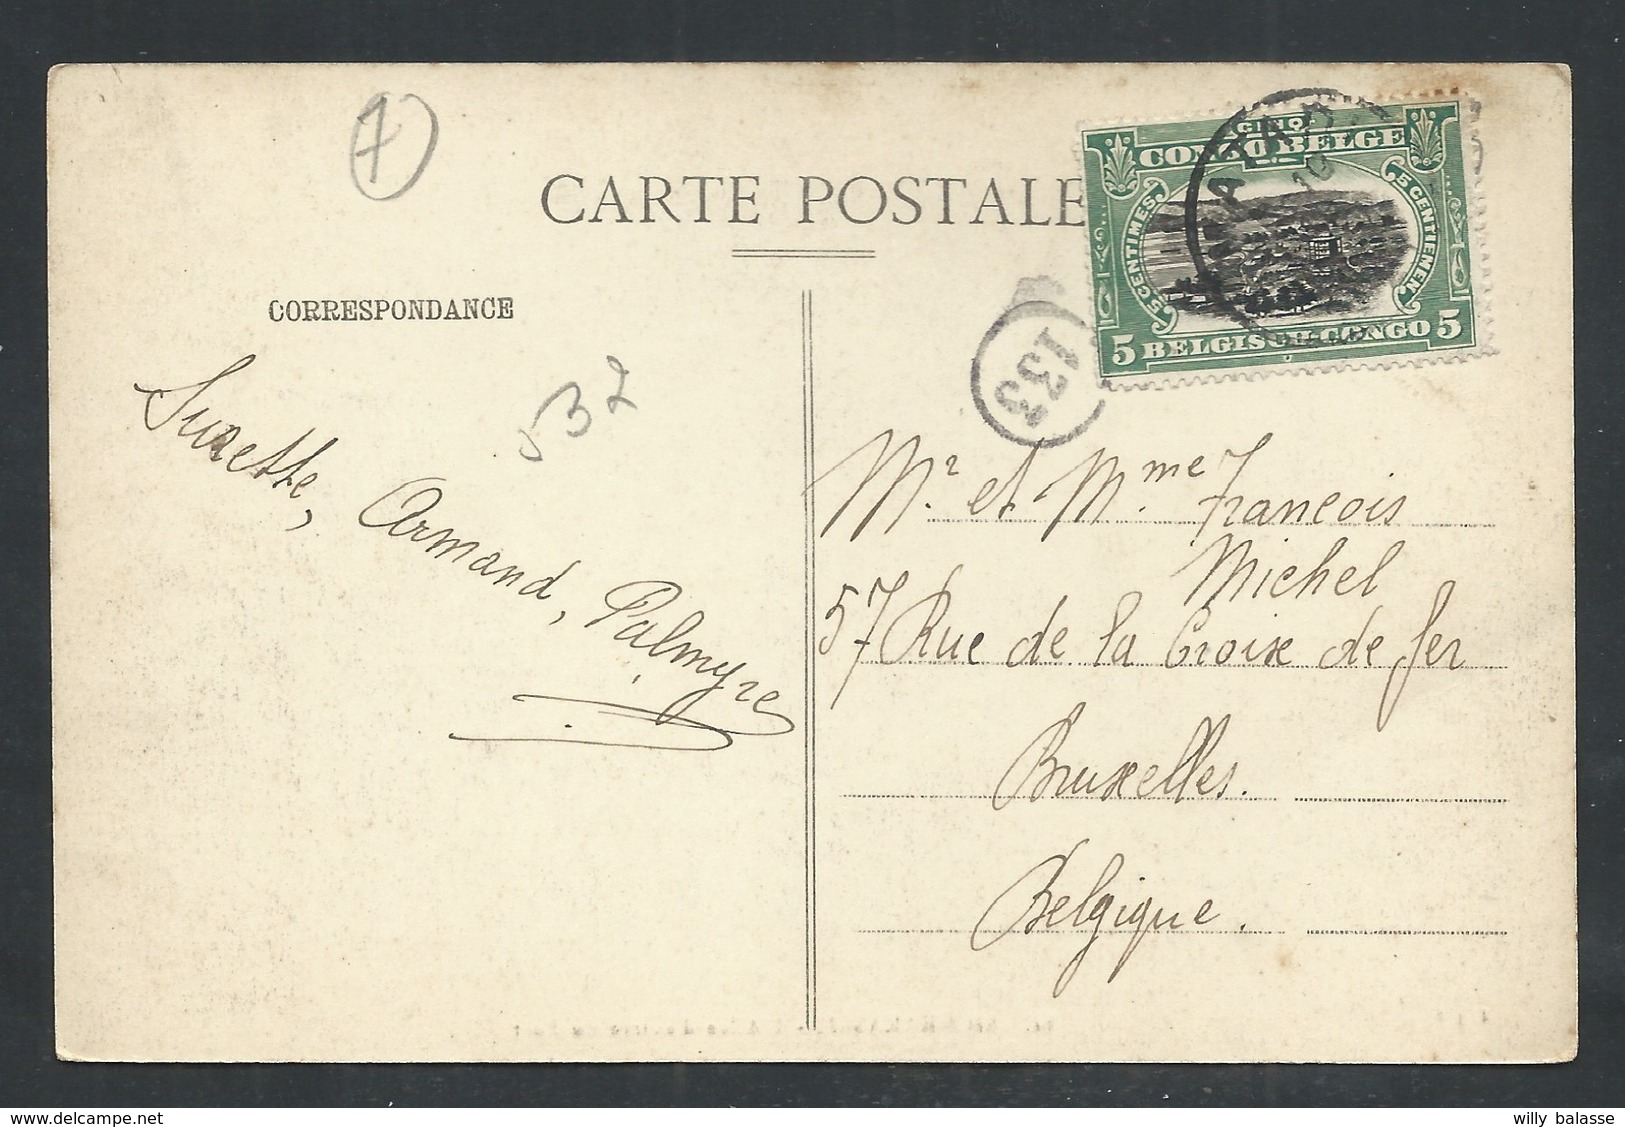 7
CARTE POSTALE
CORRESPONDANCE
CINQ
CONGO BELGE
5 CENTIMES
5 CENTIEMEN
5 BELGISCH CONGO 5
MATADI
10
133
532
Suzette, Armand, Palmyre
Mr. et Mme. Francois
Michel
57 Rue de la Croix de fer
Bruxelles.
Belgique.
delcampe.net
willy balasse